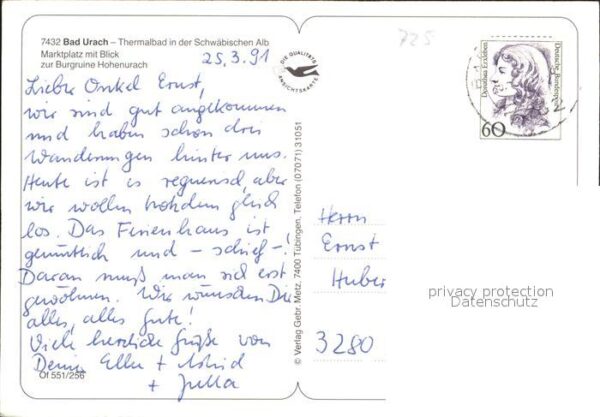 7432 Bad Urach – Thermalbad in der Schwäbischen Alb
Marktplatz mit Blick
zur Burgruine Hohenurach
25.3.91
DIE QUALITÄTS
ANSICHTSKARTE
725
Liebe Onkel Ernst,
wir sind gut angekommen
und haben schon drei
Wanderungen hinter uns.
Heute ist es regnerisch, aber
wir wollen trotzdem gleich
los. Das Ferienhaus ist
gemütlich und – schief –!
Daran muß man sich erst
gewöhnen. Wir wünschen Dir
alles, alles Gute!
Viele herzliche Grüße von
Deine Ellen + Astrid
+ Jutta
Of 551/256
© Verlag Gebr. Metz, 7400 Tübingen, Telefon (07071) 31051
Dorothea Erxleben
Deutsche Bundespost
60
Herrn
Ernst
Huber
3280
privacy protection
Datenschutz